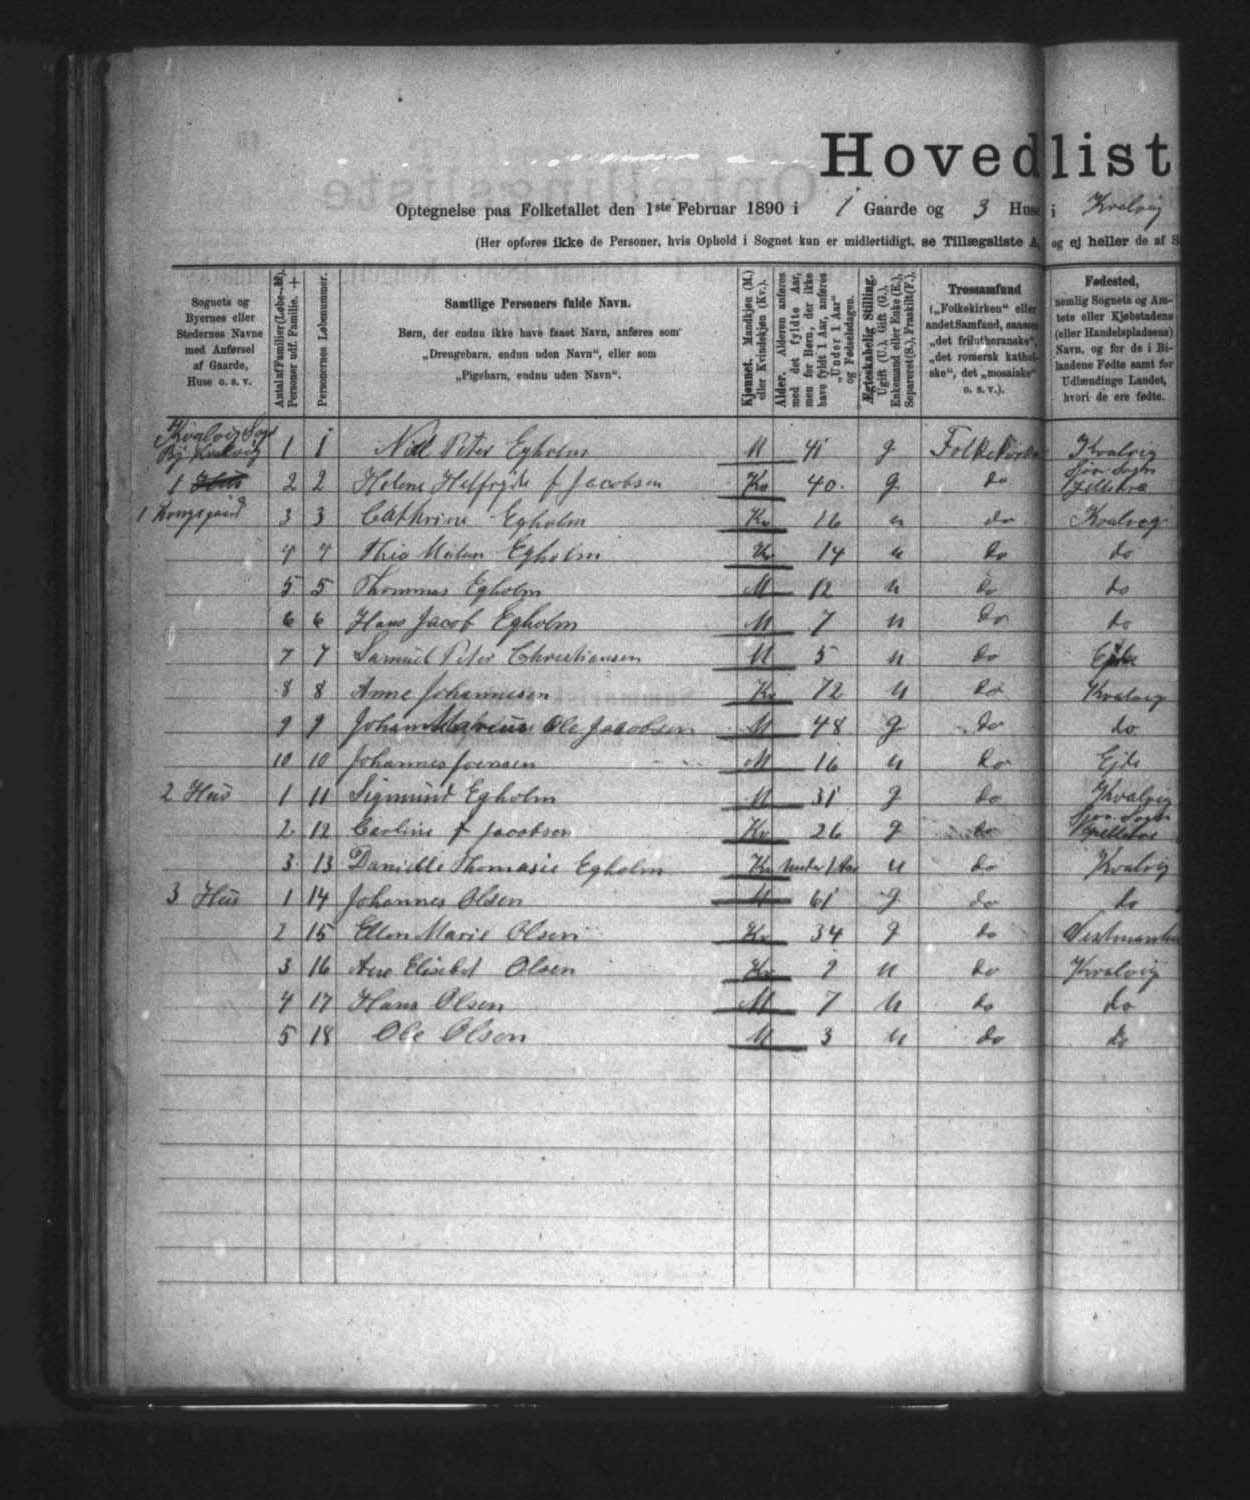 Hovedlist
Optegnelse paa Folketallet den 1ste Februar 1890 i 1 Gaarde og 3 Huse i Kvalvig
(Her opføres ikke de Personer, hvis Ophold i Sognet kun er midlertidigt, se Tillægsliste A, og ej heller de af S
Sognets og Byernes eller Stedernes Navne med Anførsel af Gaarde, Huse o. s. v.
Antal af Familier (Løbe-№). Personer udf. Familie. +
Personernes Løbenummer.
Samtlige Personers fulde Navn.
Børn, der endnu ikke have faaet Navn, anføres som
„Drengebarn, endnu uden Navn“, eller som
„Pigebarn, endnu uden Navn“.
Kjønnet. Mandkjøn (M.) eller Kvindekjøn (Kv.).
Alder. Alderen anføres med det fyldte Aar, men for Børn, der ikke have fyldt 1 Aar, anføres „Under 1 Aar“ og Fødselsdagen.
Ægteskabelig Stilling. Ugift (U.), Gift (G.), Enkemand eller Enke (E.), Separeret (S.), Fraskilt (F.).
Trossamfund („Folkekirken“ eller andet Samfund, saasom „det frilutheranske“, „det romersk katholske“, det „mosaiske“ o. s. v.).
Fødested, nemlig Sognets og Amtets eller Kjøbstadens (eller Handelspladsens) Navn, og for de i Bilandene Fødte samt for Udlændinge Landet, hvori de ere fødte.
Kvalvig Sogn
By Kvalvig 1 1 Niel Peter Egholm M 41 g Folkekirken Kvalvig
1 Hus 2 2 Helene Helfryde f Jacobsen Kv 40 g do Sjov Sogn
1 Kongsgaard 3 3 Cathrine Egholm Kv 16 u do Kvalvig
4 4 Egholm Kv 14 u do do
5 5 Thommas Egholm M 12 u do do
6 6 Hans Jacob Egholm M 7 u do do
7 7 Samuel Peter Christiansen M 5 u do Ejde
8 8 Anne Johannesen Kv 72 u do Kvalvig
9 9 Johan Ole Jacobsen M 48 g do do
10 10 Johannes Joensen M 16 u do Ejde
2 Hus 1 11 Sigmund Egholm M 31 g do Kvalvig
2 12 Caroline f Jacobsen Kv 26 g do Sjov Sogn
3 13 Danielle Thomasie Egholm Kv under 1 Aar u do Kvalvig
3 Hus 1 14 Johannes Olsen M 61 g do do
2 15 Ellen Marie Olsen Kv 34 g do
3 16 Elisebet Olsen Kv 9 u do Kvalvig
4 17 Hans Olsen M 7 u do do
5 18 Ole Olsen M 3 u do do